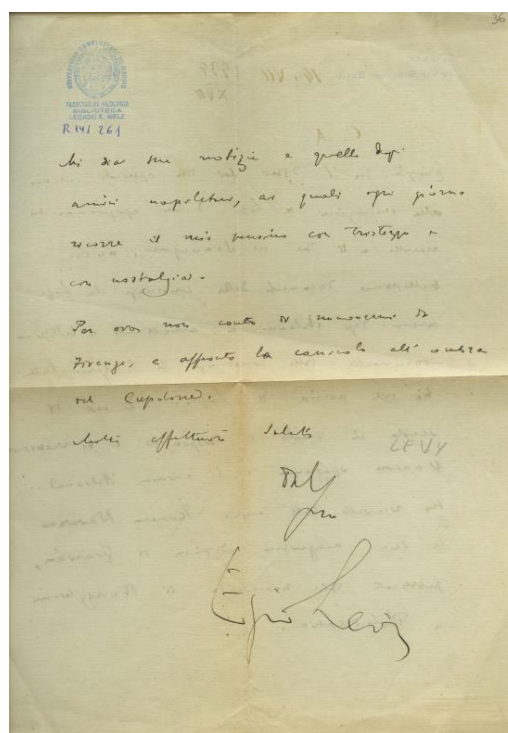 36
UNIVERSIDAD COMPLUTENSE DE MADRID
FACULTAD DE FILOLOGIA
BIBLIOTECA
LEGADO E. MELE
R 141 261
Mi dia sue notizie e quelle degli
amici napoletani, ai quali ogni giorno
ricorre il mio pensiero con tristezza e
con nostalgia.
Per ora non conto di muovermi da
Firenze, e affronto la canicola all'ombra
del Cupolone.
Molti affettuosi saluti
LEVY
dal
suo
Ezio Levi